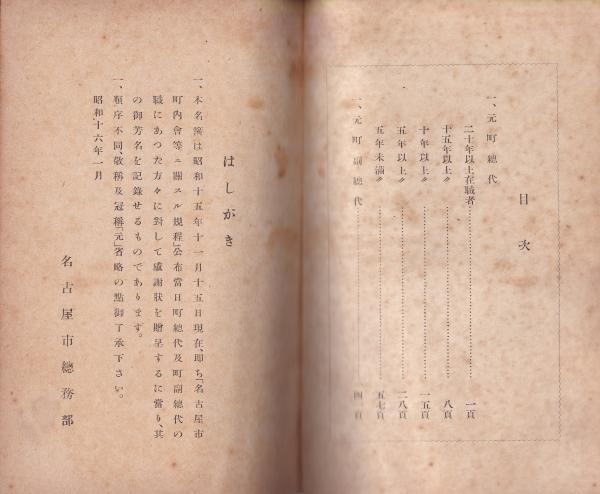 目次
一、元町總代
二十年以上在職者 一頁
十五年以上〃 八頁
十年以上〃 一五頁
五年以上〃 二八頁
五年未滿〃 五七頁
一、元町副總代 頁
はしがき
一、本名簿は昭和十五年十一月十五日現在、卽ち「名古屋市
町內會等ニ關スル規程」公布當日町總代及町副總代の
職にあつた方々に對して感謝狀を贈呈するに當り、其
の御芳名を記錄せるものであります。
一、順序不同、敬稱及冠稱「元」省略の點御了承下さい。
昭和十六年一月
名古屋市總務部